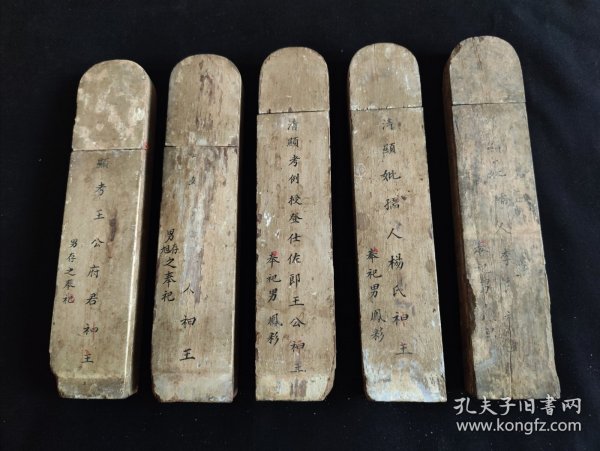 顯考王公府君神主
男存之奉祀
人神主
男存
之奉祀
清顯考例授登仕佐郎王公神主
奉祀男鳳彩
清顯妣孺人楊氏神主
奉祀男鳳彩
妣孺人李
奉祀男
孔夫子旧书网
www.kongfz.com